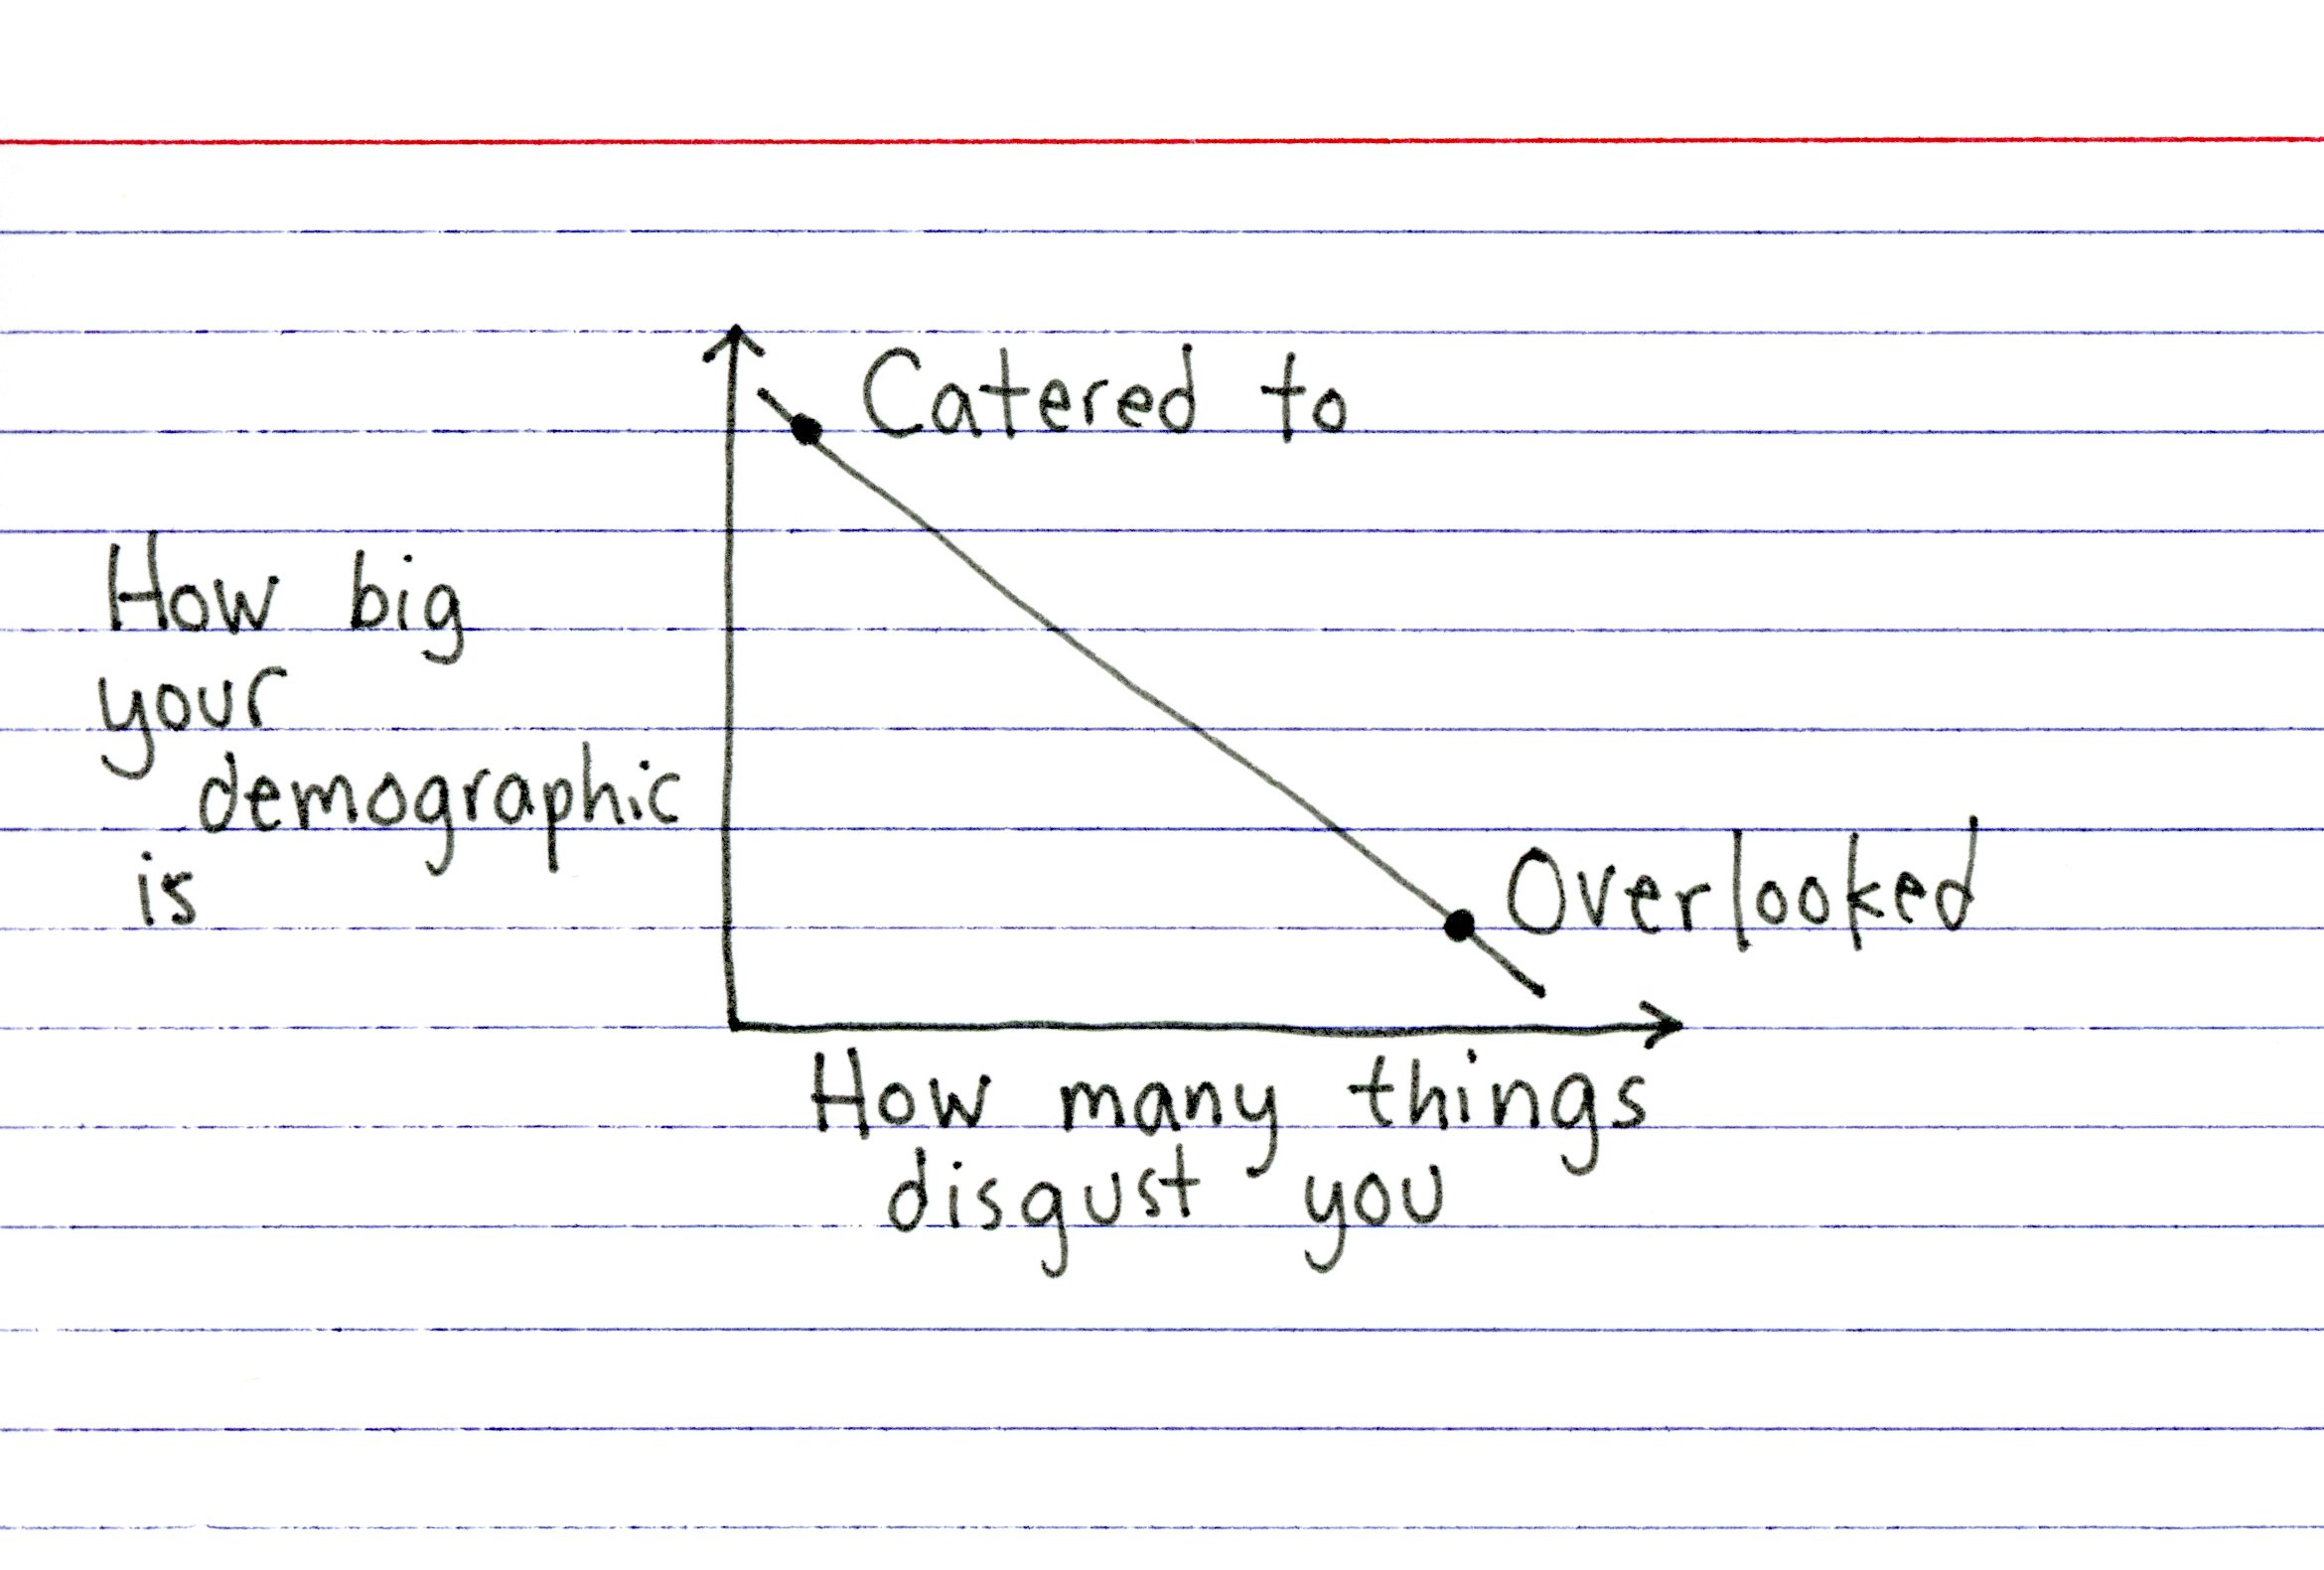 Catered to
How big
your
demographic
is
Overlooked
How many things
disgust you